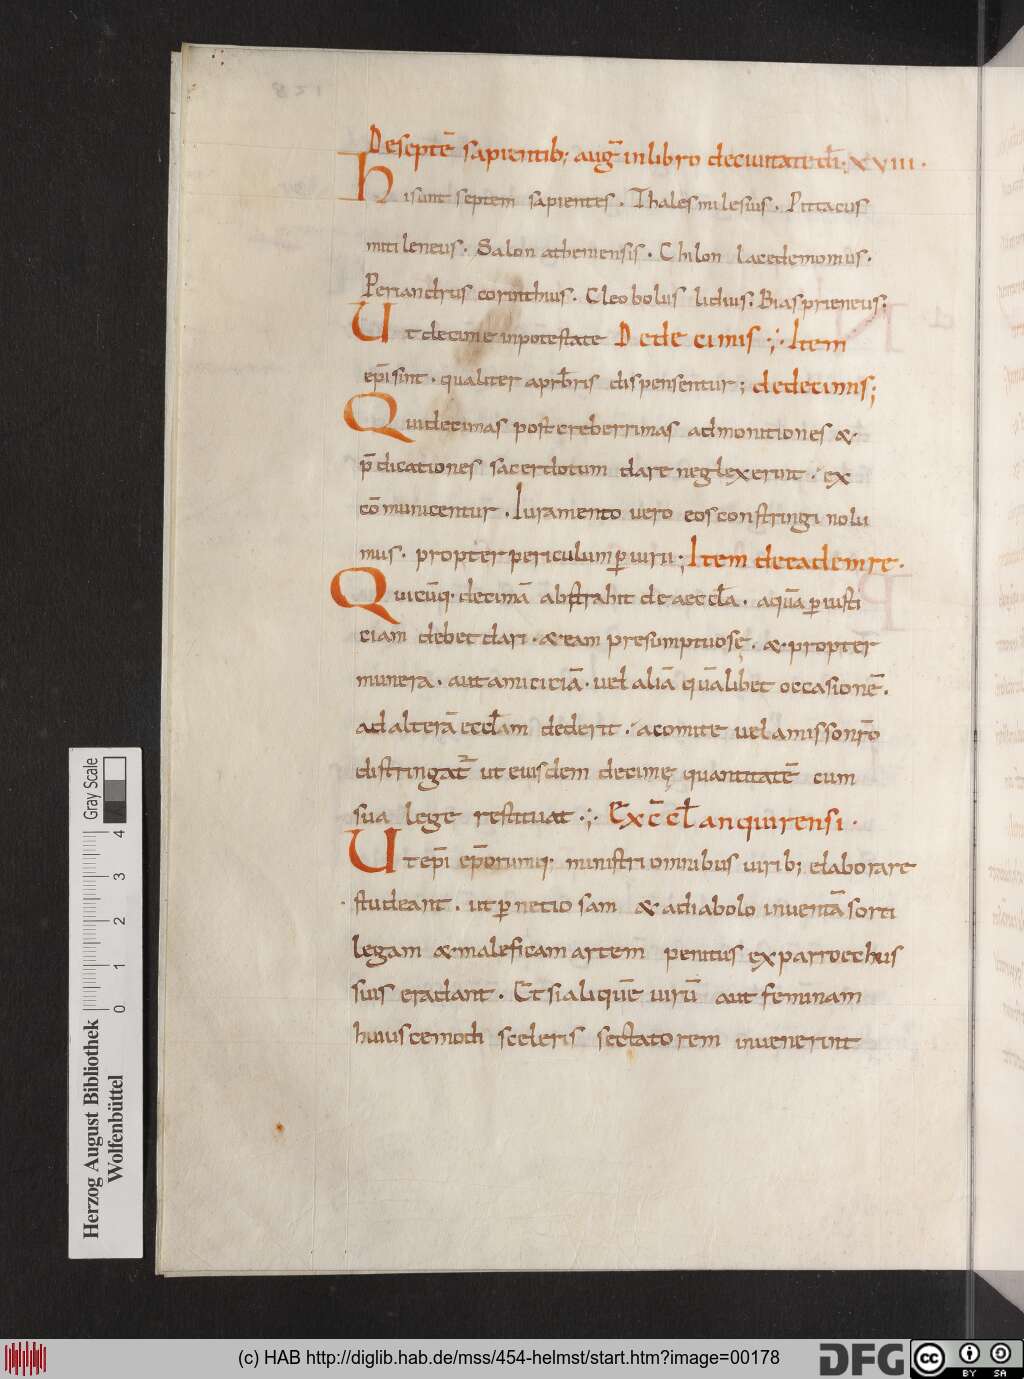 De septē sapientib; aug̅ in libro de ciuitate dī. XVIII.
Hi sunt septem sapientes. Thales milesius. Pittacus
mitileneus. Salon atheniensis. Chilon lacedemonius.
Periandrus corinthius. Cleobolus lidius; Bias prieneus;
Ut decime in potestate De decimis ;. Item
ep̄i sint. qualiter a prb̄ris dispensentur; de decimis;
Qui decimas post creberrimas admonitiones &
p̄dicationes sacerdotum dare neglexerint. ex
cōmunicentur. Iuramento uero eos constringi nolu
mus. propter periculum ꝑiurii; Item de eadem re.
Quicūq; decimā abstrahit de aeccl̄a. a quā ꝑ iusti
ciam debet dari. & eam presumptuosę. & propter
munera. aut amiciciā. uel aliā quālibet occasionē.
ad alterā eccl̄am dederit. a comite uel a misso nr̄o
distringat̄ ut eiusdem decimę quantitatē cum
sua lege restituat ;. Ex c̄cl̄ anquirensi.
Ut ep̄i ep̄orumq; ministri omnibus uirib; elaborare
studeant. ut ꝑnetiosam & a diabolo inuentā sorti
legam & maleficam artem penitus ex parroechiis
suis eradant. Et si aliquē uirū aut feminam
huiuscemodi sceleris sectatorem inuenerint
Gray Scale
4
3
2
1
0
Herzog August Bibliothek
Wolfenbüttel
(c) HAB http://diglib.hab.de/mss/454-helmst/start.htm?image=00178
DFG
cc BY SA